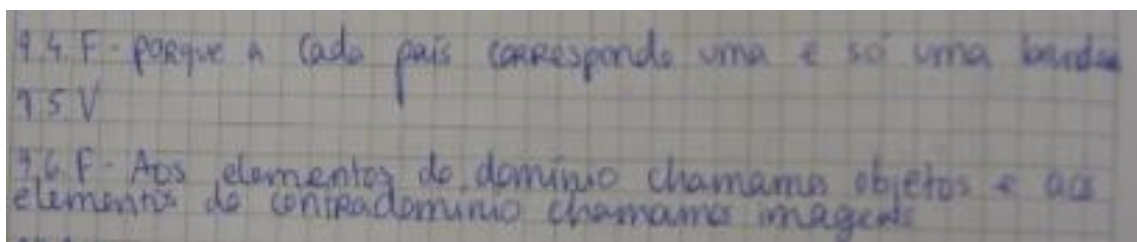 9.4. F - porque a cada país corresponde uma e só uma
9.5. V
9.6. F - Aos elementos do domínio chamamos objetos e aos
elementos do contradomínio chamamos imagens